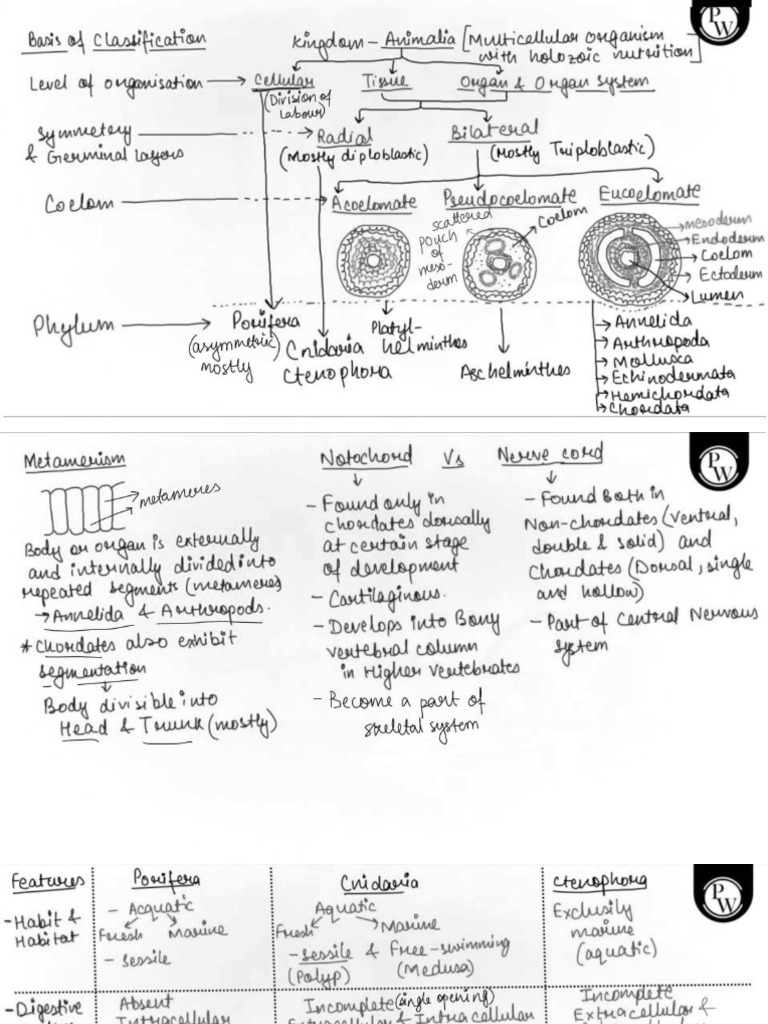 PW
Basis of Classification
Kingdom - Animalia [Multicellular organism with holozoic nutrition]
Level of organisation → Cellular Tissue Organ & Organ System
(Division of Labour)
Symmetery & Germinal layers
Radial Bilateral
(Mostly diploblastic) (Mostly Triploblastic)
Coelom → Acoelomate Pseudocoelomate Eucoelomate
scattered pouch of meso-derm
Coelom
mesoderm
Endoderm
Coelom
Ectoderm
Lumen
Phylum → Porifera
(asymmetric) mostly
Cnidaria
Ctenophora
Platyl-
helminthes
Aschelminthes
→ Annelida
→ Arthropoda
→ Mollusca
→ Echinodermata
→ Hemichordata
→ Chordata
PW
Metamerism
metameres
Body or organ is externally
and internally divided into
repeated segments (metameres)
→ Annelida & Arthropods.
* Chordates also exhibit
segmentation
Body divisible into
Head & Trunk (mostly)
Notochord Vs Nerve cord
- Found only in
chordates dorsally
at certain stage
of development
- Cartilaginous.
- Develops into Bony
vertebral column
in Higher vertebrates
- Become a part of
skeletal system
- Found Both in
Non-chordates (Ventral,
double & solid) and
Chordates (Dorsal, single
and hollow)
- Part of Central Nervous
system
PW
Features Porifera Cnidaria Ctenophora
- Habit &
Habitat
- Acquatic
Fresh Marine
- Sessile
Aquatic
Fresh Marine
- Sessile & Free-swimming
(Polyp) (Medusa)
Exclusily
marine
(aquatic)
- Digestive
Absent
Intracellular
Incomplete (single opening)
Extracellular & Intracellular
Incomplete
Extracellular &